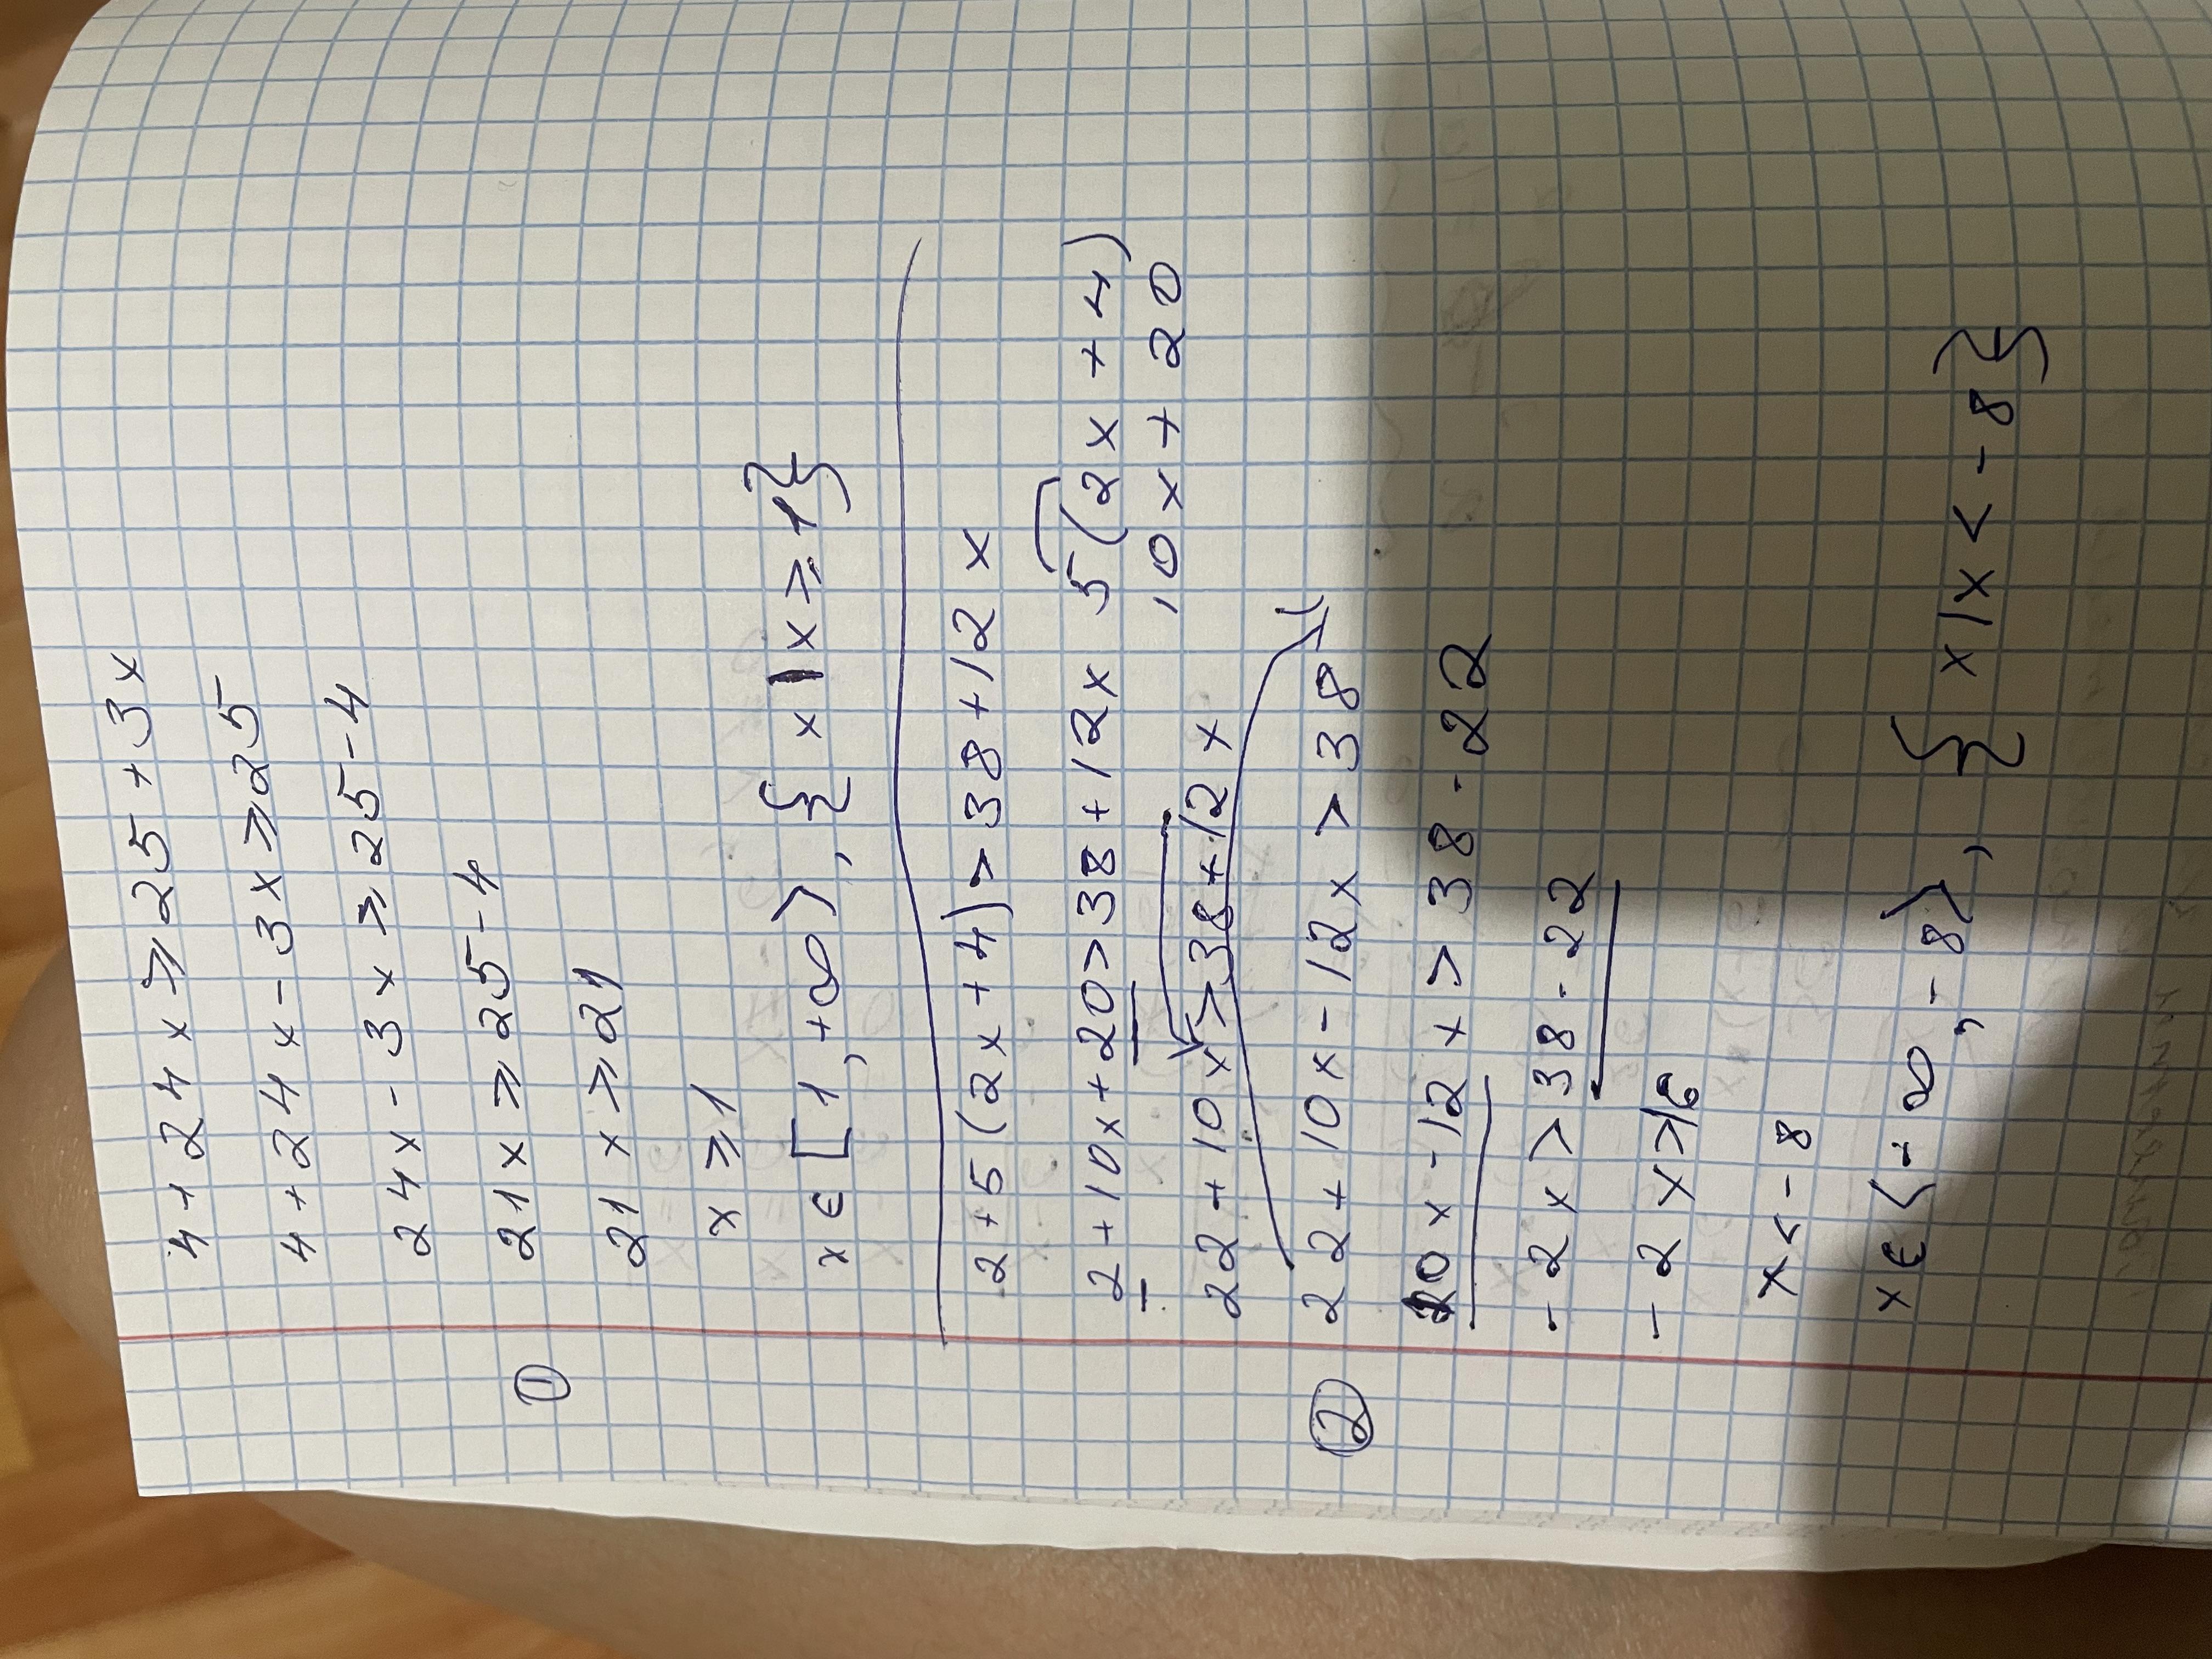 4 + 24x ⩾ 25 + 3x
4 + 24x - 3x ⩾ 25
24x - 3x ⩾ 25 - 4
① 21x ⩾ 25 - 4
21x ⩾ 21
x ⩾ 1
x ∈ [1, +∞⟩, {x | x ⩾ 1}
2 + 5(2x + 4) > 38 + 12x
2 + 10x + 20 > 38 + 12x 5(2x + 4)
22 + 10x > 38 + 12x 10x + 20
② 22 + 10x - 12x > 38
10x - 12x > 38 - 22
-2x > 38 - 22
-2x > 16
x < -8
x ∈ ⟨-∞, -8⟩, {x | x < -8}